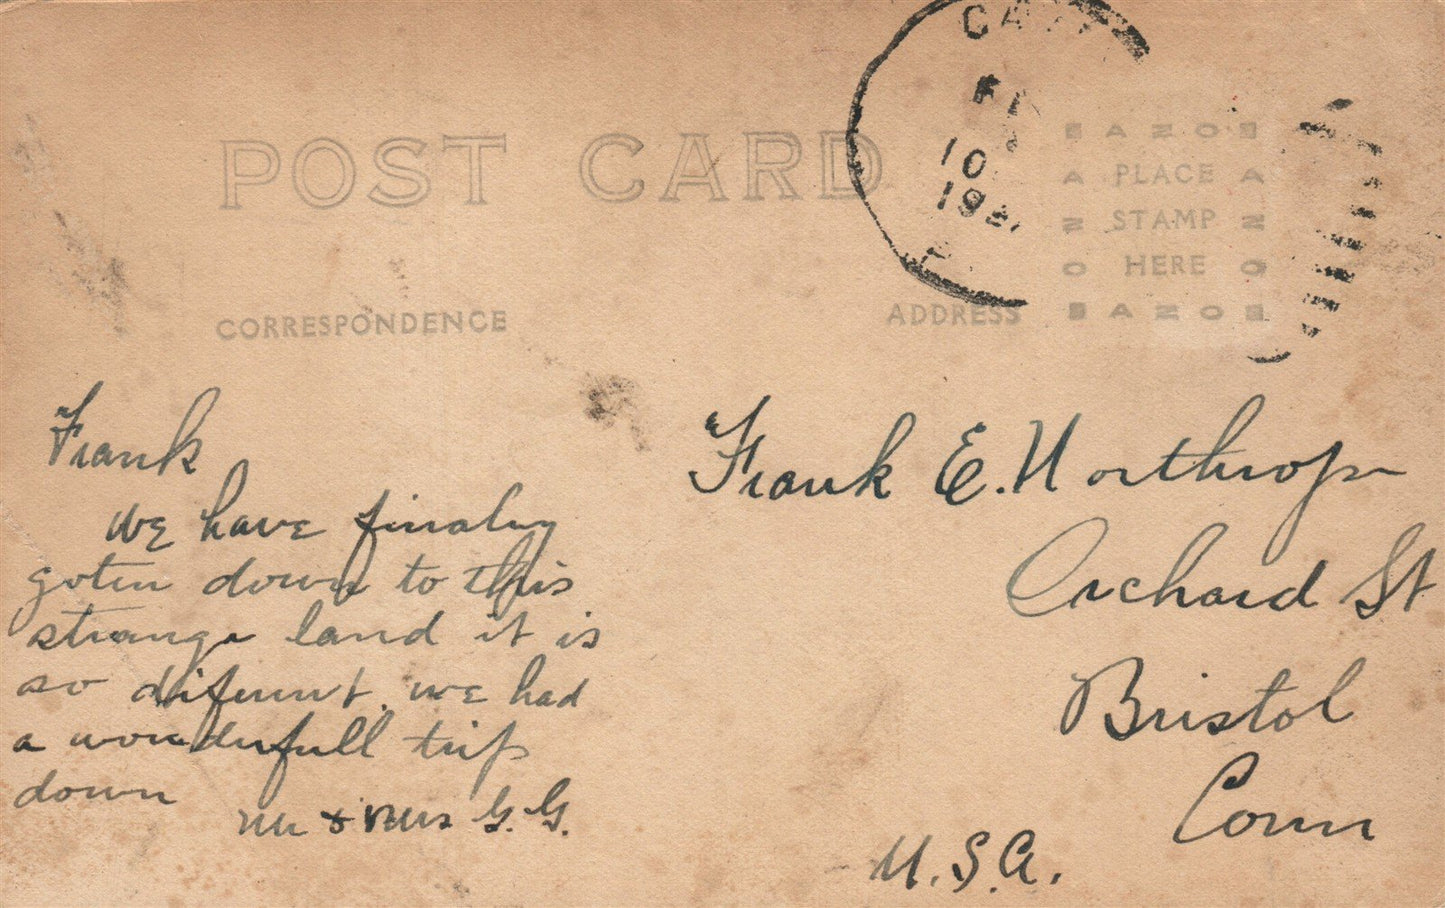 POST CARD
CORRESPONDENCE
ADDRESS
PLACE
STAMP
HERE
AZO
10
Frank
we have finaly
goten down to this
strange land it is
so difernnt. we had
a wonderfull trip
down
Mr & Mrs G. G.
Frank E. Northrop
Orchard St
Bristol
Conn
U.S.A.